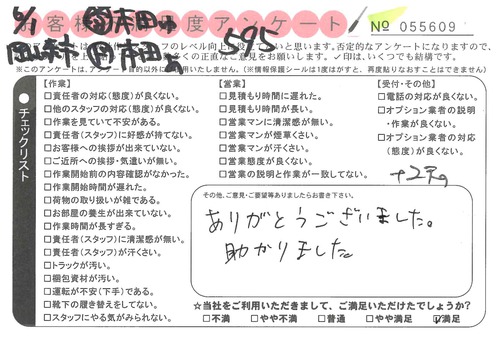 お客様満足度アンケート
№ 055609
6/1
本田
595
岡山
本田
このアンケートは
フのレベル向上
と思います。否定的なアンケートになりますので、
多くの正直なご意見をお願いします。✓印は、いくつでも結構です。
※このアンケートは、アンケート目的以外に
用いたしません。(※情報保護シールは1度はがすと、再度貼りなおすことはできません)
● チェックリスト
【作業】
□責任者の対応(態度)が良くない。
□他のスタッフの対応(態度)が良くない。
□作業を見ていて不安がある。
□責任者(スタッフ)に好感が持てない。
□お客様への挨拶が出来ていない。
□ご近所への挨拶・気遣いが無い。
□作業開始前の内容確認がなかった。
□作業開始時間が遅れた。
□荷物の取り扱いが雑である。
□お部屋の養生が出来ていない。
□作業時間が長すぎる。
□責任者(スタッフ)に清潔感が無い。
□責任者(スタッフ)が汗くさい。
□トラックが汚い。
□梱包資材が汚い。
□運転が不安(下手)である。
□靴下の履き替えをしてない。
□スタッフにやる気がみられない。
【営業】
□見積もり時間に遅れた。
□見積もり時間が長い。
□営業マンに清潔感が無い。
□営業マンが煙草くさい。
□営業マンが汗くさい。
□営業態度が良くない。
□営業の説明と作業が一致してない。
【受付・その他】
□電話の対応が良くない。
□オプション業者の説明
・作業が良くない。
□オプション業者の対応
(態度)が良くない。
その他、ご意見・ご要望等ありましたらお書き下さい。
ありがとうございました。
助かりました
☆当社をご利用いただきまして、ご満足いただけたでしょうか?
□不満 □やや不満 □普通 □やや満足 ☑満足